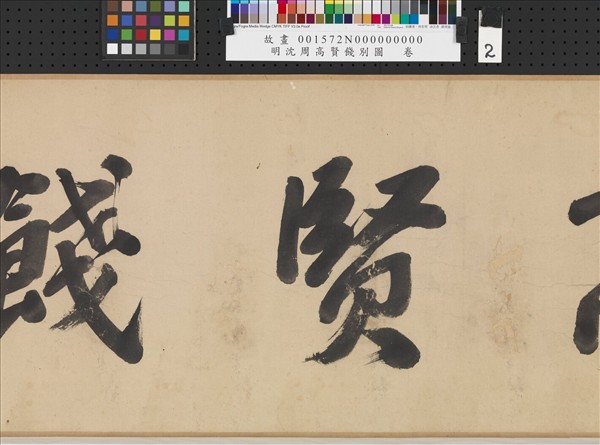 故畫 001572N000000000
明沈周高賢餞別圖 卷
2
高賢餞